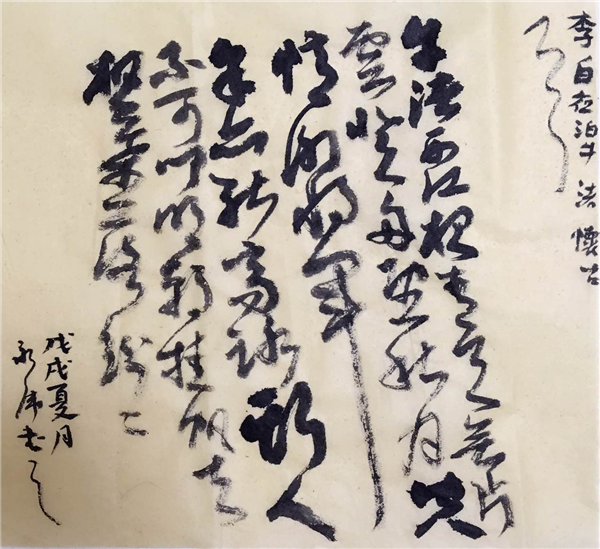 李白夜泊牛渚懷古
牛渚西江夜青天無片
雲登舟望秋月空
憶謝將軍
余亦能高詠斯人
不可聞明朝挂帆去
楓葉落紛〻
戊戌夏月
永書